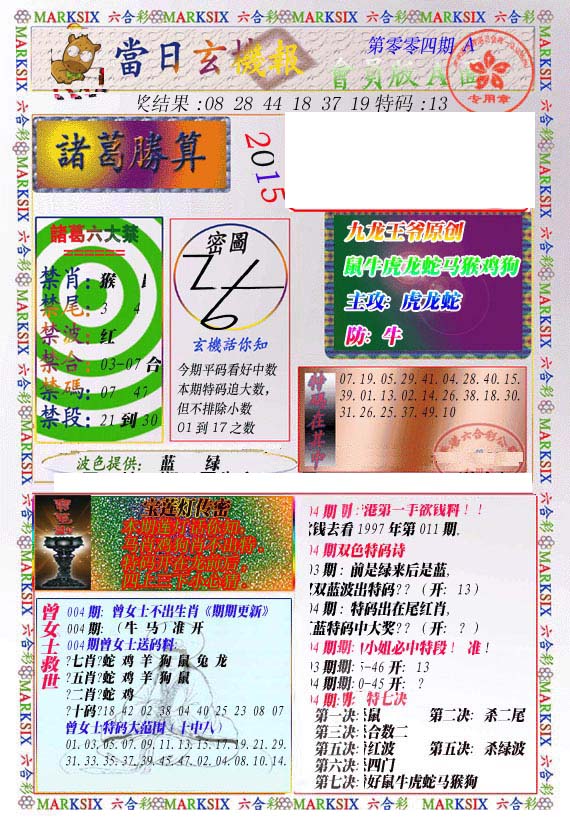 MARKSIX 六合彩 MARKSIX 六合彩 MARKSIX 六合彩 MARKSIX
當日玄機報
第零零四期 A
會員版A面
专用章
奖结果:08 28 44 18 37 19特码:13
諸葛勝算
2015
諸葛六大禁
禁肖:猴
禁尾:3 4
禁波:红
禁合:03-07合
禁碼:07 47
禁段:21到30
密圖
玄機活你知
今期平码看好中数
本期特码追大数,
但不排除小数
01到17之数
九龙王爷原创
鼠牛虎龙蛇马猴鸡狗
主攻:虎龙蛇
防:牛
特码在其中
07.19.05.29.41.04.28.40.15.
39.01.13.02.14.26.38.18.30.
31.26.25.37.49.10
波色提供: 蓝 绿
宝莲灯传密
曾女士救世
004期:曾女士不出生肖《期期更新》
004期:(牛 马)准 开
004期曾女士送码料
?七肖?蛇 鸡 羊 狗 鼠 兔 龙
?五肖?蛇 鸡 羊 狗 鼠
?二肖?蛇 鸡
?十码?18 42 02 38 04 40 25 23 08 07
曾女士特码大范围(十中八)
01.03.05.07.09.11.13.15.17.19.21.29.
31.33.35.37.39.45.47.02.04.08.10.14.
港第一手欲钱料!!
钱去看1997年第011期.
04期双色特码诗
03期:前是绿来后是蓝,
双蓝波出特码??(开:13)
04期:特码出在尾红肖,
蓝特码中大奖??(开:?)
小姐必中特段! 准!
03期期:5-46开:13
04期期:0-45开:?
04期: 特七决
第一决:鼠 第二决:杀二尾
第三决:合数二
第五决:红波 第五决:杀绿波
第六决:四门
第七决:好鼠牛虎蛇马猴狗
MARKSIX 六合彩 MARKSIX 六合彩 MARKSIX 六合彩 MARKSIX 六合彩 MARKSIX